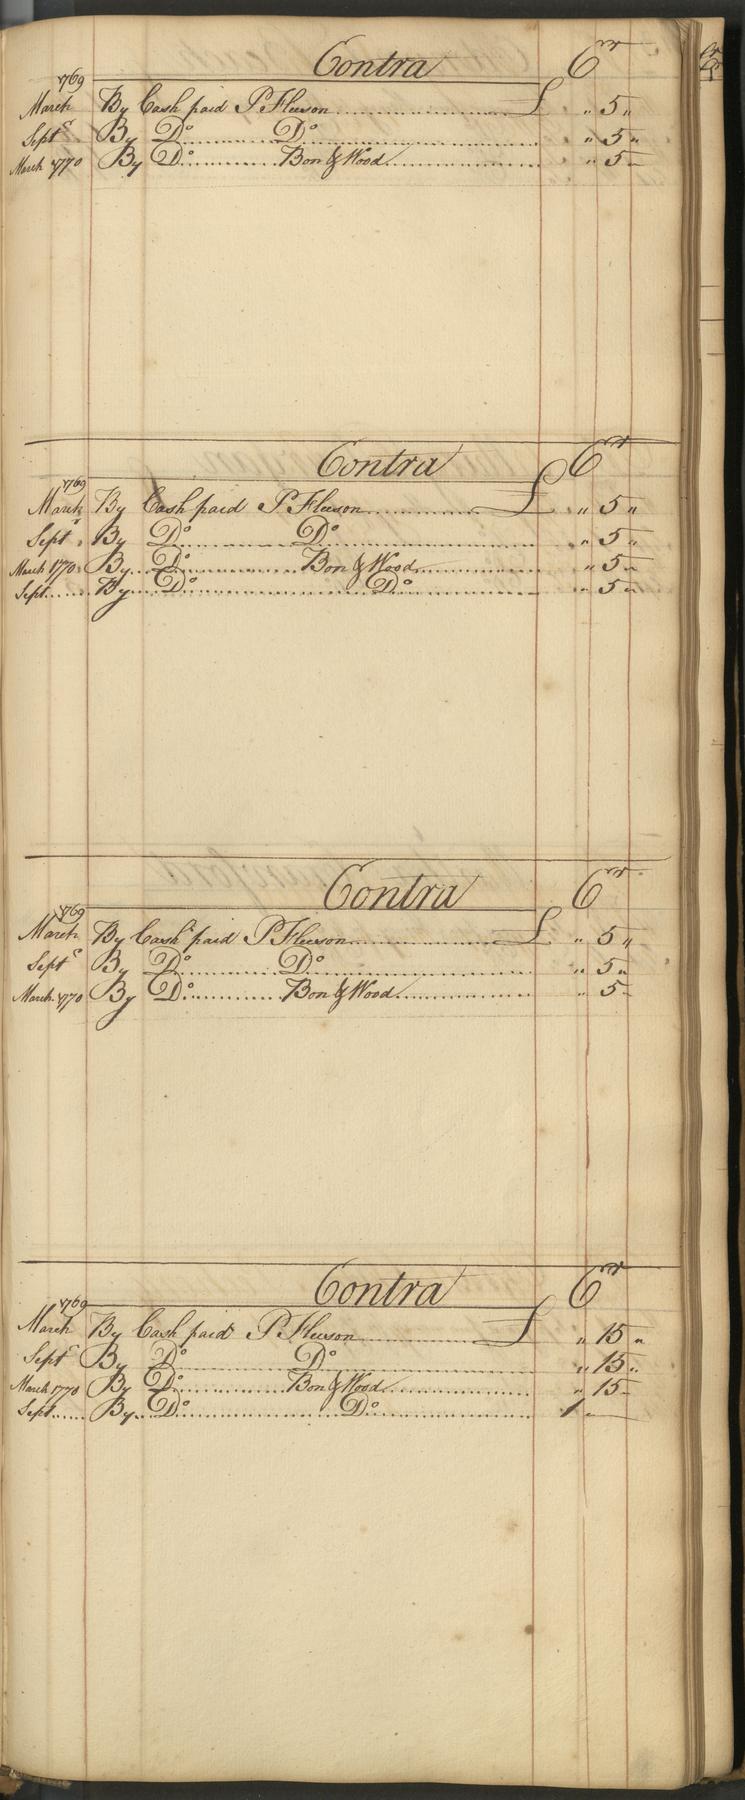 Contra Cr
1769
March By Cash paid P Fleeson £ " 5 "
Sept. By Do Do " 5 "
March 1770 By Do Bon & Wood " 5 -
Contra Cr
1769
March By Cash paid P Fleeson £ " 5 "
Sept. By Do Do " 5 "
March 1770 By Do Bon & Wood " 5 -
Sept By Do Do " 5 -
Contra Cr
1769
March By Cash paid P Fleeson £ " 5 "
Sept. By Do Do " 5 "
March 1770 By Do Bon & Wood " 5 -
Contra Cr
1769
March By Cash paid P Fleeson £ " 15 "
Sept. By Do Do " 15 "
March 1770 By Do Bon & Wood " 15 -
Sept By Do Do 1 -